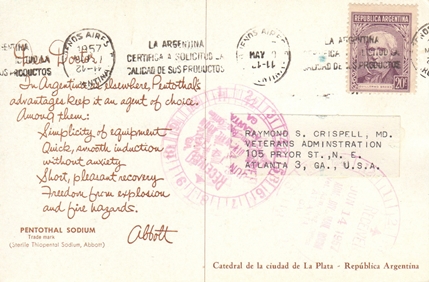 BUENOS AIRES
1957
ARGENTINA
LA ARGENTINA
CERTIFICA A SOLICITUD LA
CALIDAD DE SUS PRODUCTOS
BUENOS AIRES
MAY
12-11
REPUBLICA ARGENTINA
20
Dear Doctor
In Argentina as elsewhere, Pentothal's
advantages keep it an agent of choice.
Among them:
Simplicity of equipment
Quick, smooth induction
without anxiety
Short, pleasant recovery
Freedom from explosion
and fire hazards.
Abbott
PENTOTHAL SODIUM
Trade mark
(Sterile Thiopental Sodium, Abbott)
RECEIVED
RAYMOND S. CRISPELL, MD.
VETERANS ADMINSTRATION
105 PRYOR ST., N. E.
ATLANTA 3, GA., U.S.A.
Catedral de la ciudad de La Plata - República Argentina